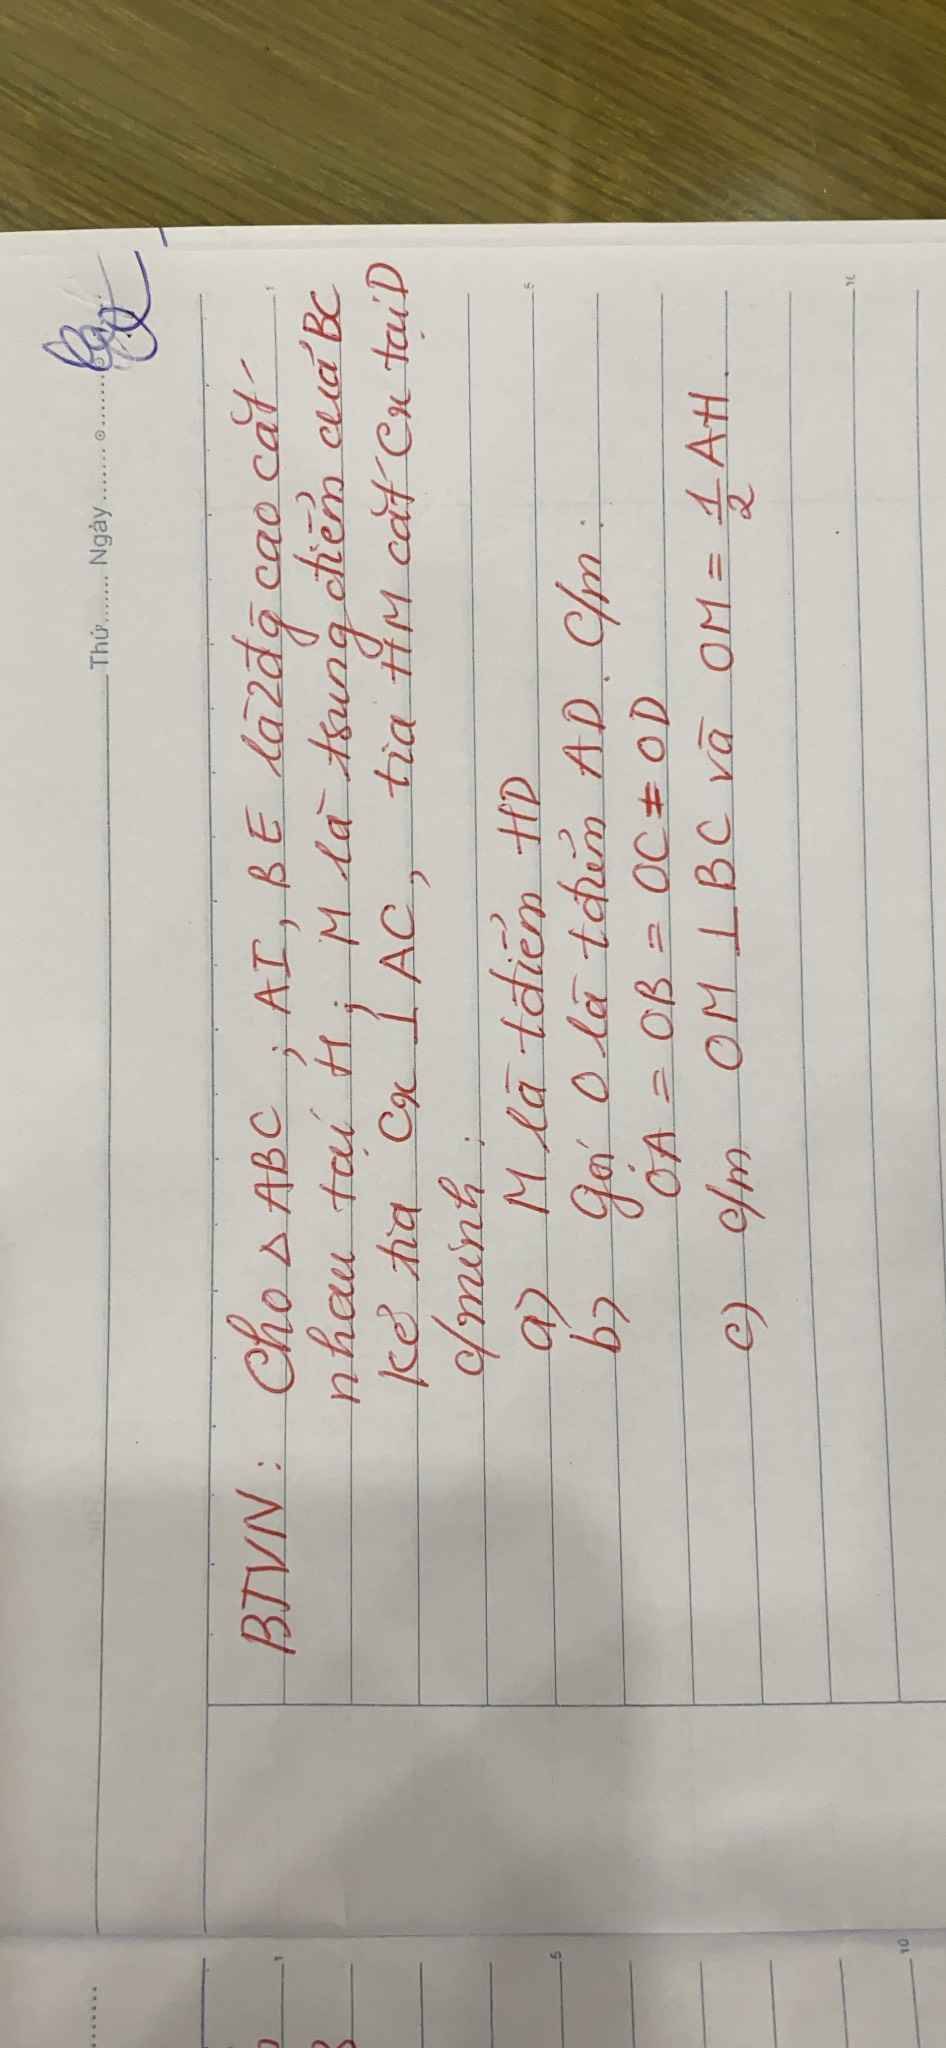 Thứ........ Ngày........
BTVN : Cho △ ABC ; AI, BE là 2 đg cao cắt
nhau tại H ; M là trung điểm của BC
kẻ tia Cx ⊥ AC, tia HM cắt Cx tại D
c/minh :
a) M là tđiểm HD
b) Gọi O là tđiểm AD. C/m :
OA = OB = OC = OD
c) c/m OM ⊥ BC và OM = 1/2 AH.
1
5
10
1
5
10